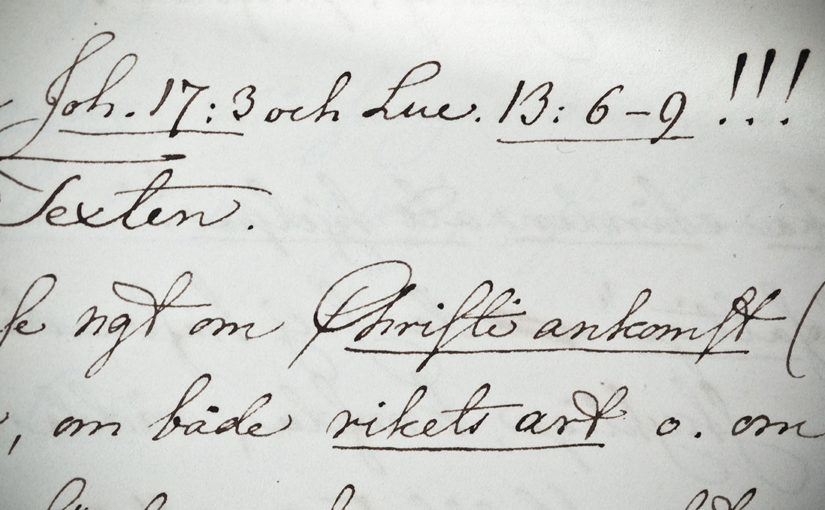 Joh. 17:3 och Luc. 13: 6-9 !!!
Texten.
se ngt om Christi ankomst (
, om både rikets art o. om